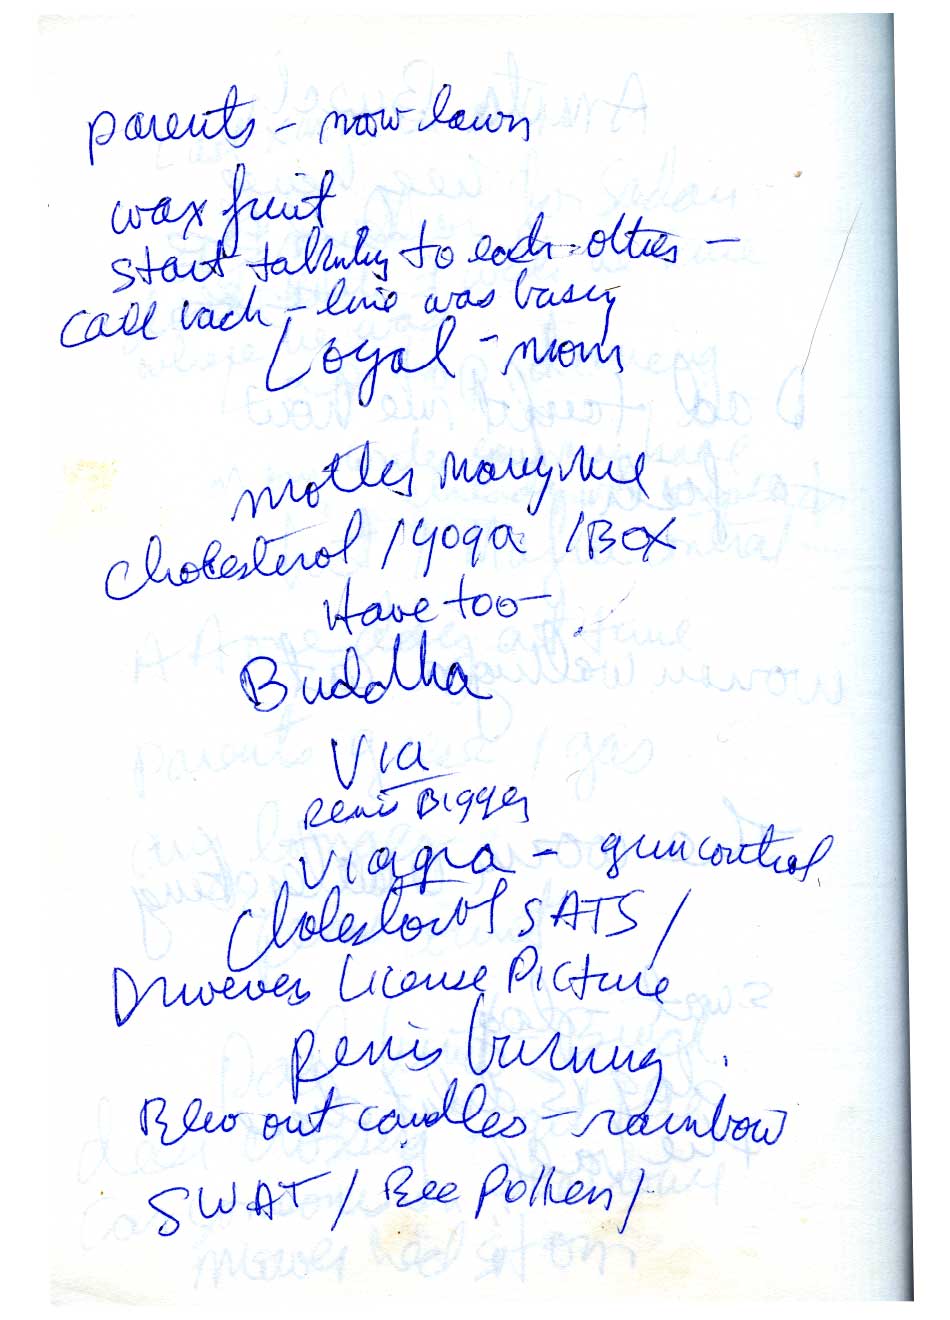 parents - mow lawn
wax fruit
start talking to each other -
call back - line was busy
Loyal - mom
mother
cholesterol / yoga / Box
Have too -
Buddha
Via
Penis Bigger
Viagra - gun control.
Cholesterol SATS /
License Picture
Penis burning
Blew out candles - rainbow
SWAT / Bee Pollen /